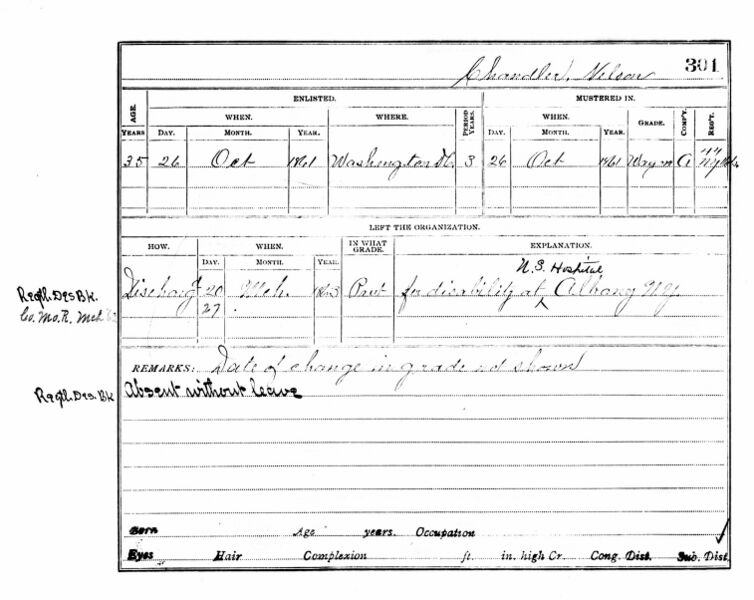 Chandler, Nelson 301
ENLISTED. MUSTERED IN.
AGE. WHEN. WHERE. PERIOD YEARS. WHEN. GRADE. COMP'Y. REG'T.
YEARS DAY. MONTH. YEAR. DAY. MONTH. YEAR.
35 26 Oct 1861 Washington DC. 3 26 Oct 1861 Wag'n'r A 44 NY Vols.
LEFT THE ORGANIZATION.
HOW. WHEN. IN WHAT GRADE. EXPLANATION.
DAY. MONTH. YEAR.
U.S. Hospital
Discharg'd 20 Mch. 1863 Prvt for disability at ^ Albany NY.
Regtl. Des Bk.
27
Co. Mo. R. Mch
REMARKS: Date of change in grade not shown
Regtl. Des. Bk Absent without leave
Born Age years. Occupation
Eyes Hair Complexion ft. in. high Cr. Cong. Dist. Sub. Dist.